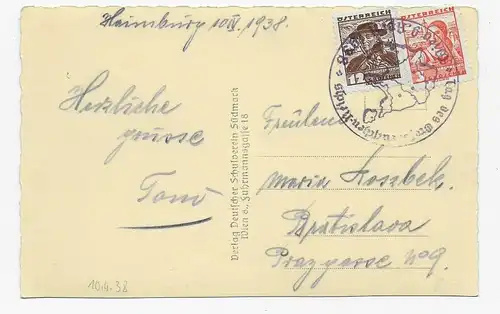 Hainburg 10 IV. 1938.
ÖSTERREICH
ÖSTERREICH
12
Tag des Großdeutschen Reichs
Herzliche
grüsse
Toni
Verlag Deutscher Schulverein Südmark
Wien 8., Fuhrmannsgasse 18
Freulein
Maria Koszbek.
Bratislava
Praygasse No 9.
10.4.38